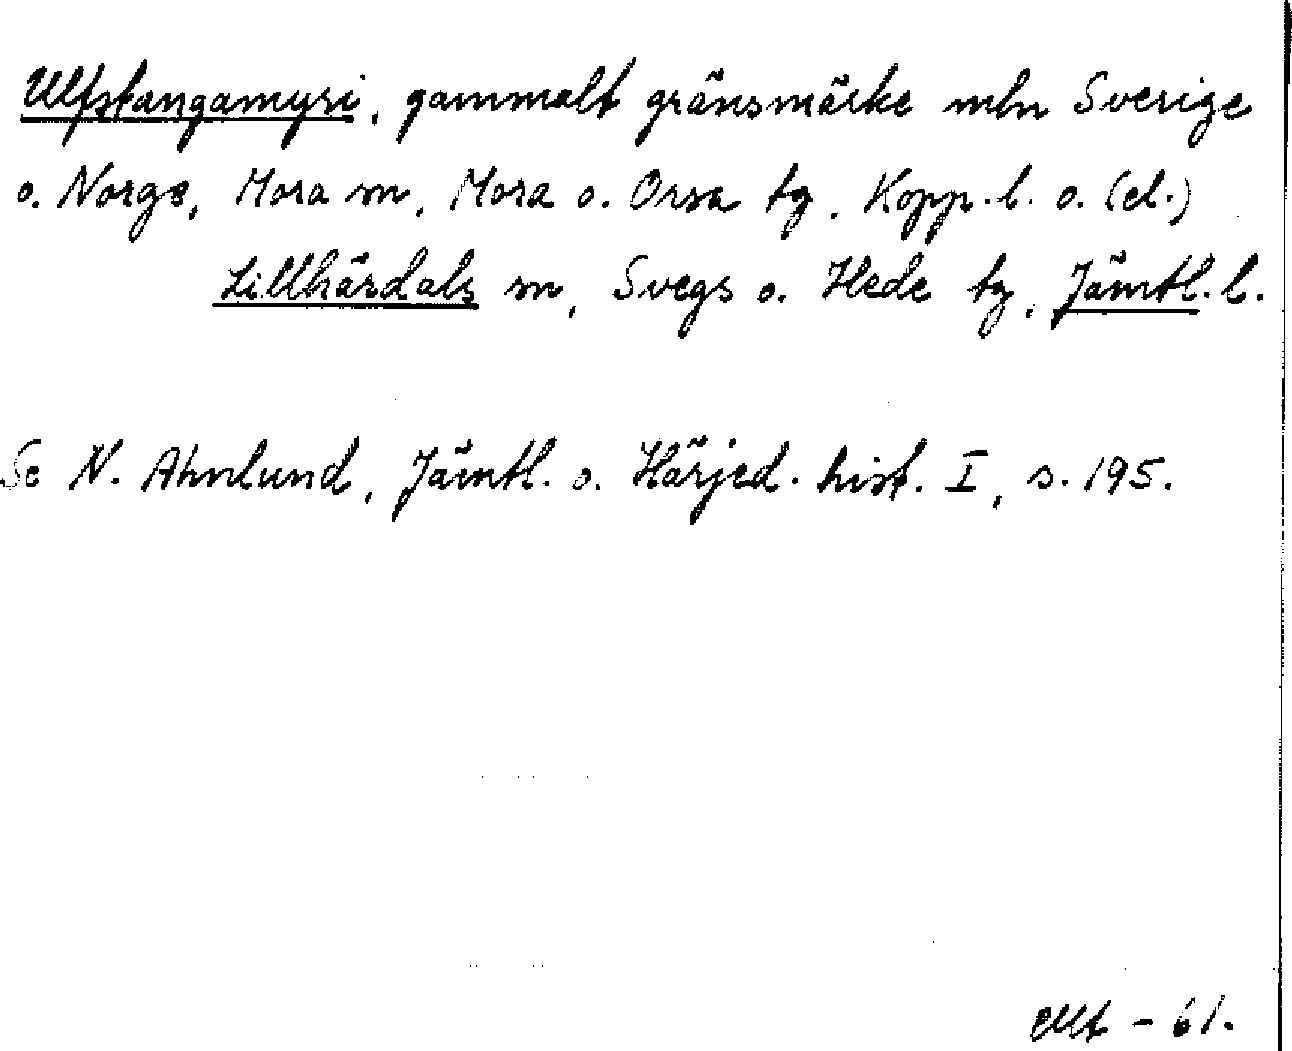 Ulfstangamyri, gammalt gränsmärke mln Sverige
o. Norge, Mora sn, Mora o. Orsa tg, Kopp. l. o. (el.)
Lillhärdals sn, Svegs o. Hede tg, Jämtl. l.
Se N. Ahnlund, Jämtl. o. Härjed. hist. I, s. 195.
- 61.